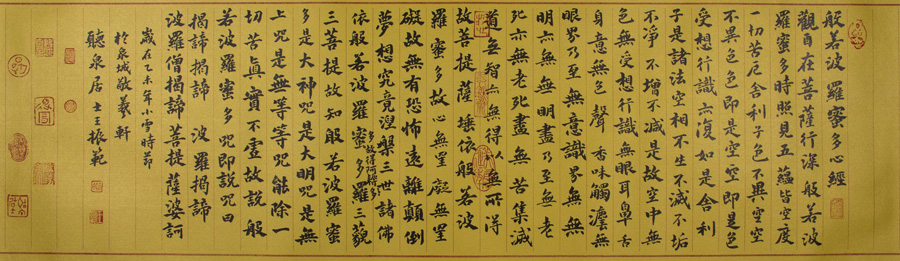 般若波羅蜜多心經
觀自在菩薩行深般若波
羅蜜多時照見五蘊皆空度
一切苦厄舍利子色不異空空
不異色色即是空空即是色
受想行識亦復如是舍利
子是諸法空相不生不滅不垢
不淨不增不減是故空中無
色無受想行識無眼耳鼻舌
身意無色聲香味觸灋無
眼界乃至無意識界無無
明亦無無明盡乃至無老
死亦無老死盡無苦集滅
道無智亦無得以無所得
故菩提薩埵依般若波
羅蜜多故心無罣礙無罣
礙故無有恐怖遠離顛倒
夢想究竟涅槃三世諸佛
依般若波羅蜜多羅三藐
多故得阿耨多
三菩提故知般若波羅蜜
多是大神咒是大明咒是無
上咒是無等等咒能除一
切苦真實不虛故說般
若波羅蜜多咒即說咒曰
揭諦揭諦 波羅揭諦
波羅僧揭諦菩提薩婆訶
歲在乙未年小雪時節
於泉城敬羲軒
聽泉居士王振範